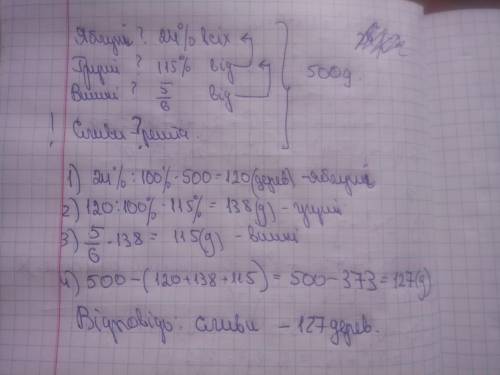 Яблуні ? 24% всіх
Груші ? 115% від
Вишні ? 5/6 від
500д.
! Сливи - ? решта.
1) 24% : 100% · 500 = 120 (дерев) - яблунь
2) 120 : 100% · 115% = 138 (д) - груші
3) 5/6 · 138 = 115 (д) - вишні
4) 500 - (120 + 138 + 115) = 500 - 373 = 127 (д)
Відповідь: сливи - 127 дерев.